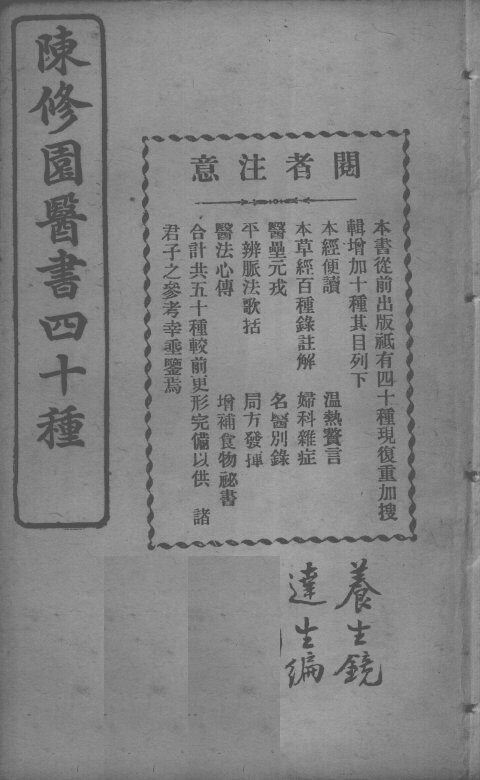 陳修園醫書四十種
閱者注意
本書從前出版祗有四十種現復重加搜
輯增加十種其目列下
本經便讀　溫熱贅言
本草經百種錄註解　婦科雜症
醫壘元戎　名醫別錄
平辨脈法歌括　局方發揮
醫法心傳　增補食物祕書
合計共五十種較前更形完備以供　諸
君子之參考幸垂鑒焉
養生鏡
達生编